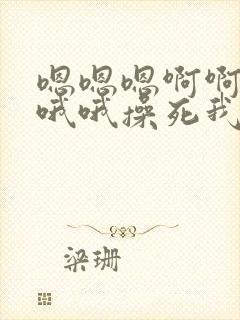 嗯嗯嗯啊啊
哦哦操死我
梁珊